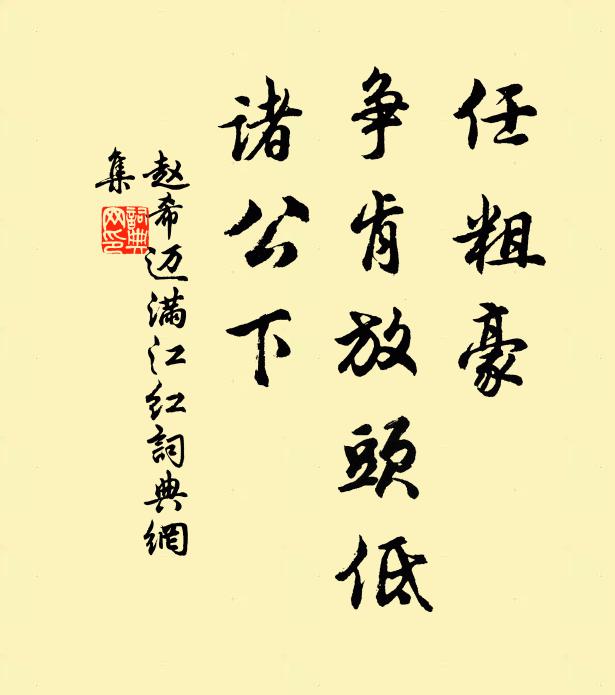 任粗豪
争肯放頭低
诸公下
赵希迈满江红詞典網
集
詞典
网印